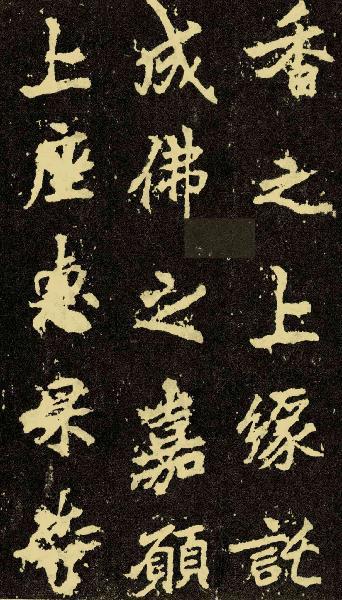 香之上緣託
成佛之嘉願
上座惠杲寺